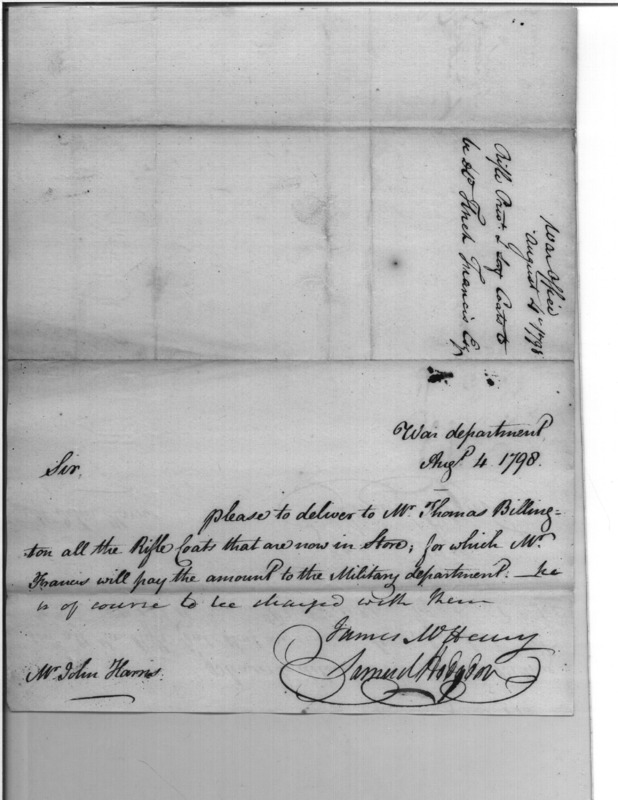 War Office
August 4th 1798
Rifle Coats to
Tench Francis Esqr
War department
Augt. 4 1798.
Sir,
please to deliver to Mr. Thomas Billing=
ton all the Rifle Coats that are now in Store; for which Mr.
Francis will pay the amount to the Military department. He
is of course to be charged with them
James McHenry
Samuel Hodgdon
Mr. John Harris.